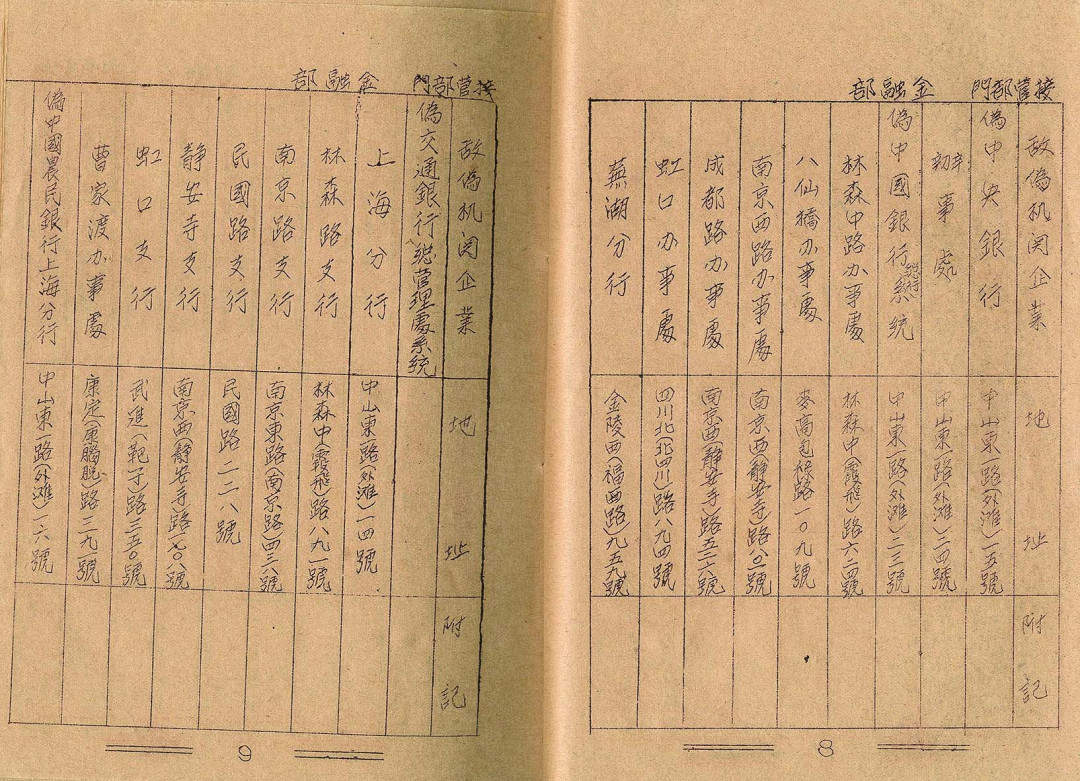 接管部門 金融部
敌偽机関企業 地址 附記
偽中央銀行 中山東一路(外滩)一五號
辦事處 中山東一路(外滩)二四號
偽中國銀行系統 中山東一路(外滩)二三號
林森中路办事處 林森中(霞飛)路六二四號
八仙橋办事處 麥高包祿路一〇九號
南京西路办事處 南京西(静安寺)路八〇二號
成都路办事處 南京西(静安寺)路五二六號
虹口办事處 四川北(北四川)路八九四號
蕪湖分行 金陵西(福西路)九五九號
8
接管部門 金融部
敌偽机関企業 地址 附記
偽交通銀行總管理處系統
上海分行 中山東一路(外滩)一四號
林森路支行 林森中(霞飛)路八九一號
南京路支行 南京東路(南京路)四三六號
民國路支行 民國路二二八號
静安寺支行 南京西(静安寺)路一七〇八號
虹口支行 武進(靶子)路三五〇號
曹家渡办事處 康定(康腦脫)路三九一號
偽中國農民銀行上海分行 中山東一路(外滩)一六號
9